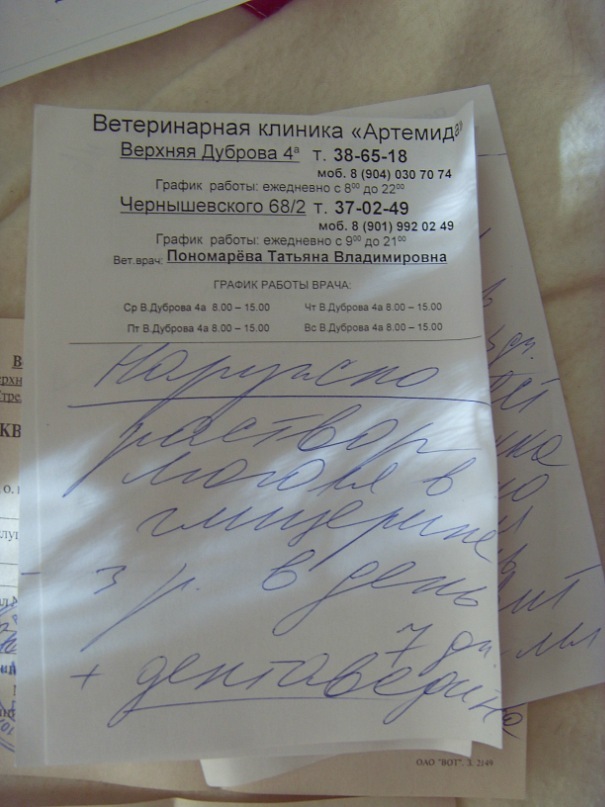 Ветеринарная клиника «Артемида»
Верхняя Дуброва 4а т. 38-65-18
моб. 8 (904) 030 70 74
График работы: ежедневно с 8⁰⁰ до 22⁰⁰
Чернышевского 68/2 т. 37-02-49
моб. 8 (901) 992 02 49
График работы: ежедневно с 9⁰⁰ до 21⁰⁰
Вет.врач: Пономарёва Татьяна Владимировна
ГРАФИК РАБОТЫ ВРАЧА:
Ср В.Дуброва 4а 8.00 – 15.00 Чт В.Дуброва 4а 8.00 – 15.00
Пт В.Дуброва 4а 8.00 – 15.00 Вс В.Дуброва 4а 8.00 – 15.00
Наружно
раствор
люголя в
глицерине
3 р. в день
7 дн
+ дентаведина
ОАО "ВОТ". З. 2149